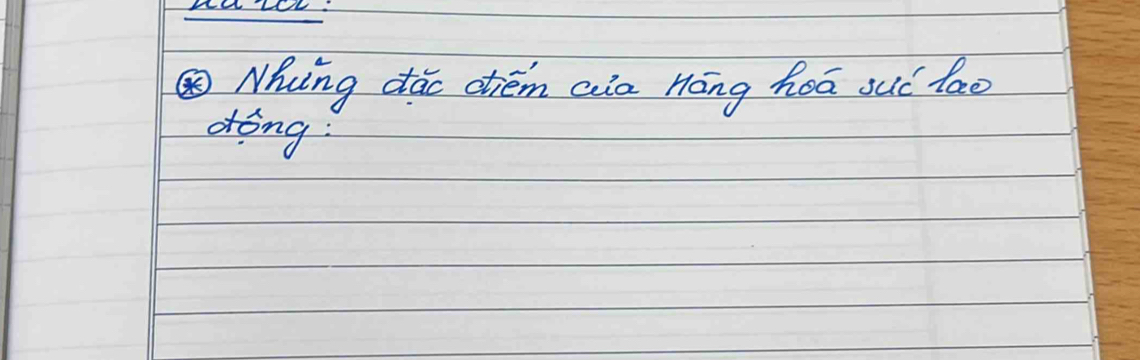 ⊛ Những đặc điểm của Hàng hoá sức lao
động: